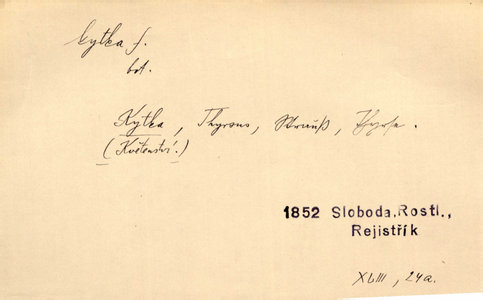 kytka f.
bot.
Kytka, Thyrsus, Strauß, Thyrse.
(Květenství.)
1852 Sloboda, Rostl.,
Rejistřík
XLIII, 24a.